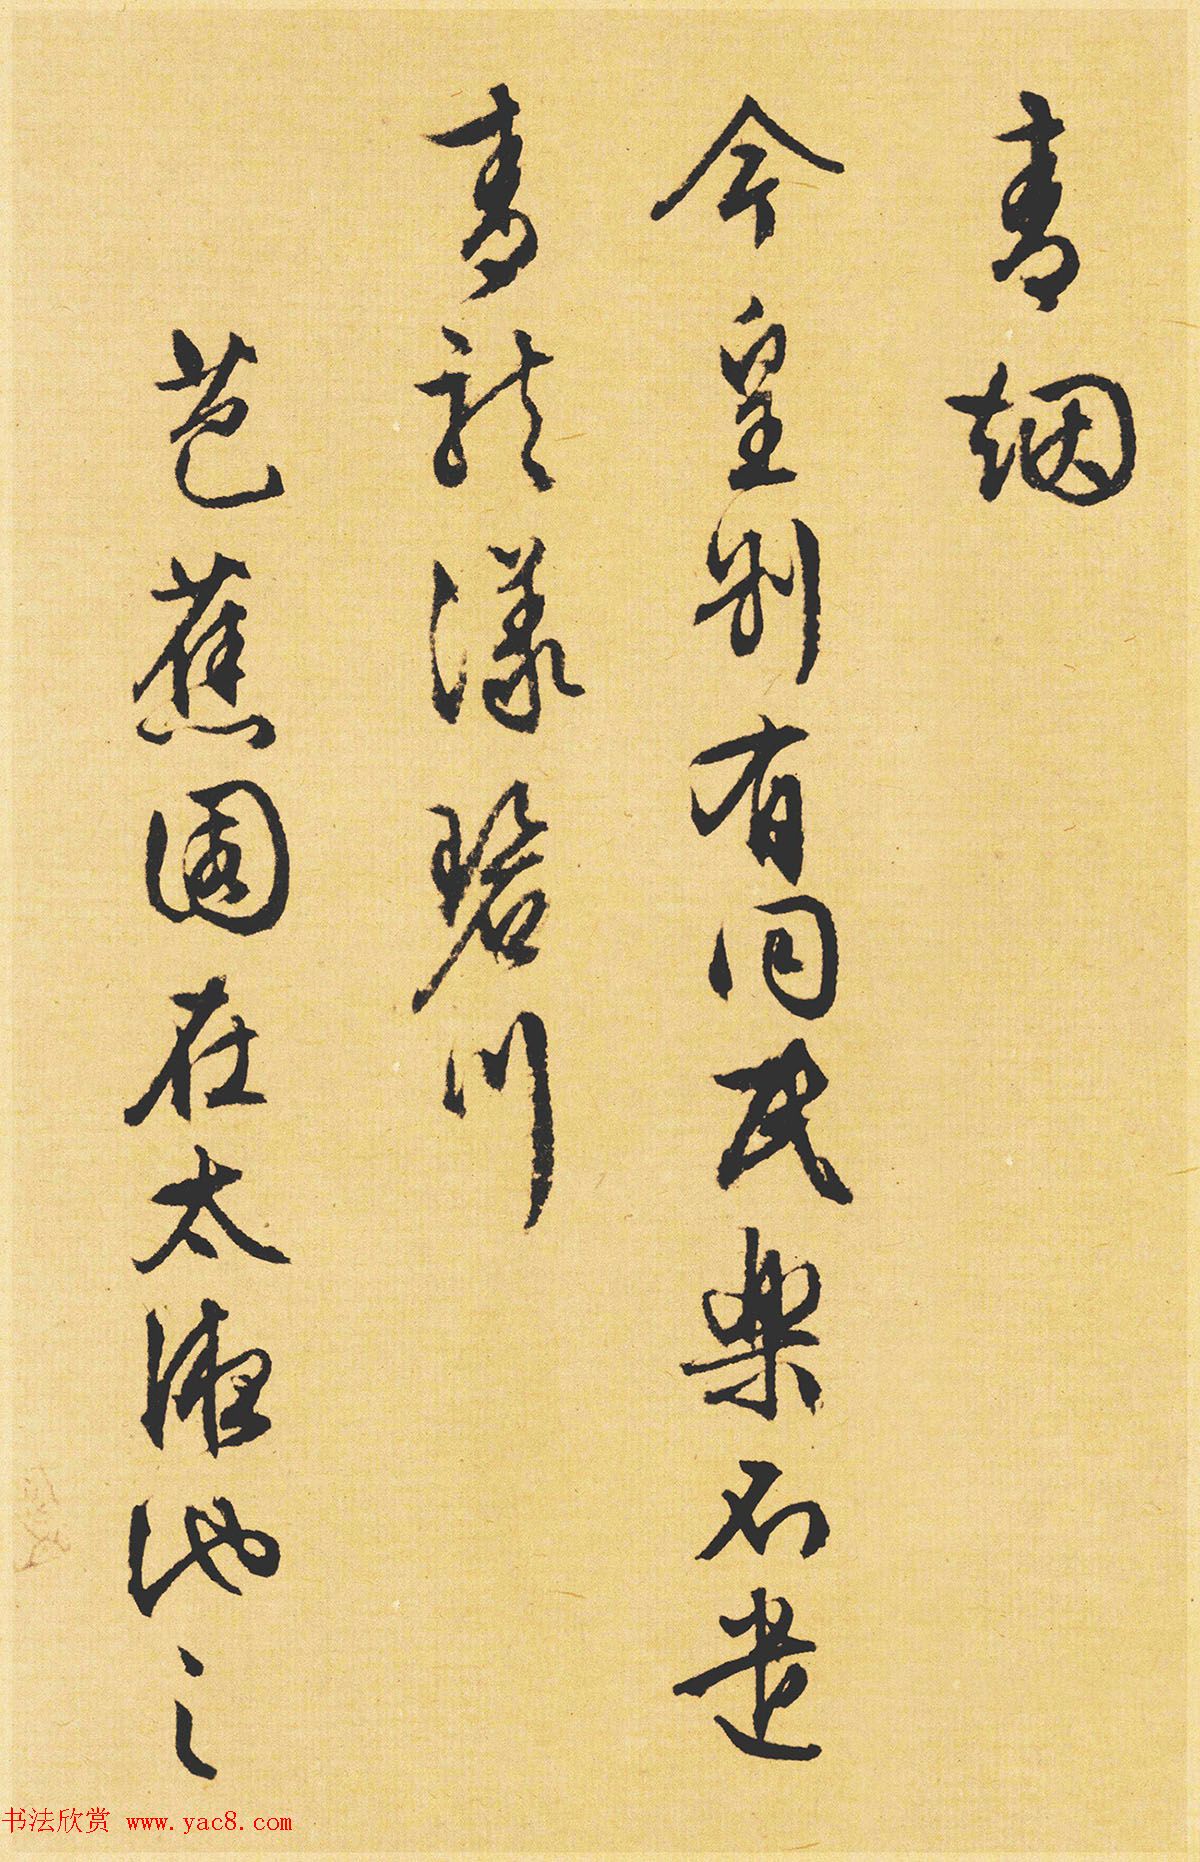 青烟
今皇别有同民樂不遣
青龍漾碧川
芭蕉園在太液池之
书法欣赏 www.yac8.com